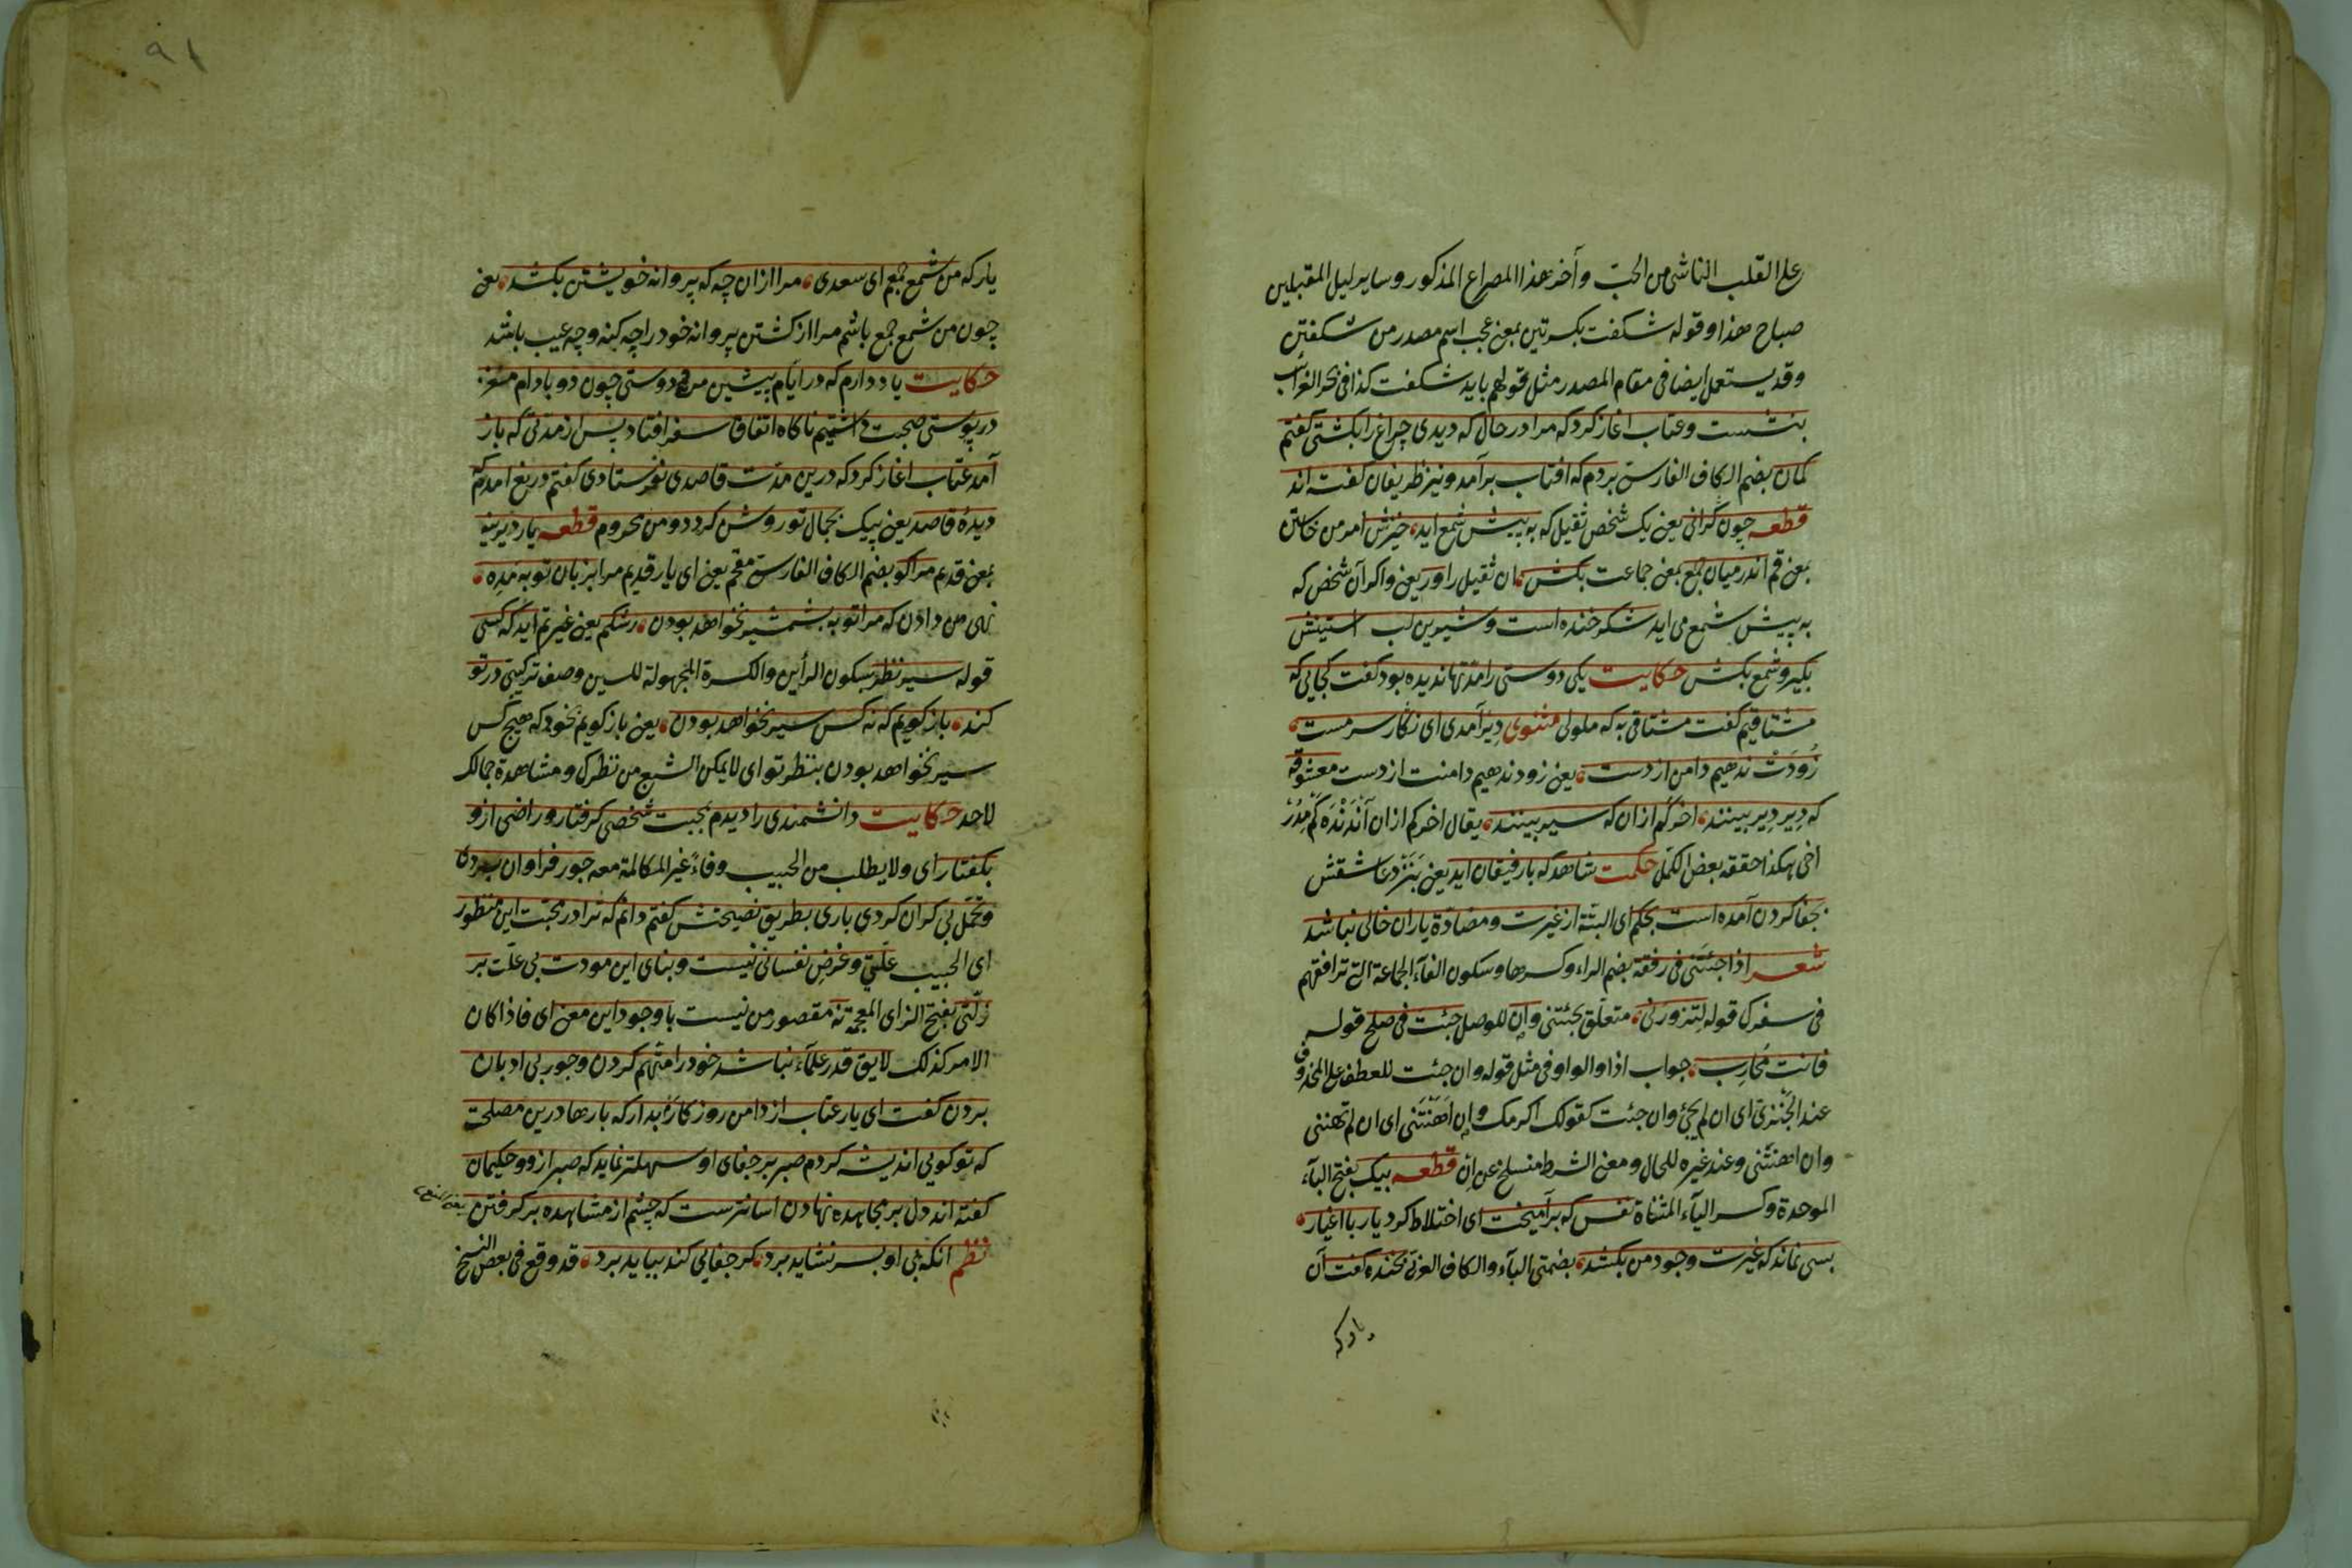 على القلب الناشى من الحبّ وآخر هذا المصراع المذكور وساير ليل المقبلين
صباح هذا وقوله شكفت بكسرتين بمعنى عجب اسم مصدر من شكفتن
وقد يستعمل ايضا فى مقام المصدر مثل قولهم بايد شكفت كذا فى بحر الغرائب
بنشست وعتاب اغاز كرد كه مرا در حال كه ديدى چراغ را بكشتى كفتم
كمان بضم الكاف الفارسى بردم كه افتاب برآمد ونيز ظريفان كفته اند
قطعه چون كرانى يعنى يك شخص ثقيل كه به پيش شمع ايد خيزش امر من خاستن
بمعنى قم اندر ميان جمع بمعنى جماعت بكش ان ثقيل را ور يعنى واكر آن شخص كه
به پيش شمع مى ايد شكر خنده است وشيرين لب استينش
بكير وشمع بكش حكايت يكى دوستى را مدّتها نديده بود كفت كجايى كه
مشتاقيم كفت مشتاقى به كه ملولى مثنوى دير آمدى اى نكار سرمست
زودت ندهيم دامن از دست يعنى زود ندهيم دامنت از دست معشوقه
كه دير دير بينند اخر كم از ان كه سير بينند يقال اخر كم از ان
اخى هكذا حققه بعض الكمّل حكمت شاهد كه با رفيقان ايد يعنى بنزد عاشقش
بجفا كردن آمده است بحكم اى البتّه از غيرت ومضادّة ياران خالى نباشد
شعر اذا جئتنى فى رفقة بضم الراء وكسرها وسكون الفاء الجماعة التى ترافقهم
فى سفرك قوله لتزورنى متعلّق بجئتنى وإن للوصل جئت فى صلح قوله
فانت محارب جواب اذا والواو فى مثل قوله وان جئت للعطف على المحذوف
عند الجنزىّ اى ان لم يجئ وان جئت كقولك اكرمك وإن اهنتنى اى ان لم تهننى
وان اهنتنى وعند غيره للحال ومعنى الشرط منسلخ عن إن قطعه بيك بفتح الباء
الموحدة وكسر الياء المثناة نفس كه برآميخت اى اختلاط كرد يار با اغيار
بسى نماند كه غيرت وجود من بكشد بضمتى الباء والكاف العربى بخنده كفت آن
يار كه
٩١
يار كه من شمع جمعم اى سعدى مرا از ان چه كه پروانه خويشتن بكشد يعنى
چون من شمع جمع باشم مرا از كشتن پروانه خود را چه كنه وچه عيب باشد
حكايت ياد دارم كه در ايّام پيشين من ودوستى چون دو بادام مغز
در پوستى صحبت داشتيم ناكاه اتفاق سفر افتاد پس از مدتى كه باز
آمد عتاب اغاز كرد كه درين مدّت قاصدى نفرستادى كفتم دريغ امدم كه
ديدهٔ قاصد يعنى پيك بجمال تو روشن كردد ومن محروم قطعه يار ديرينه
بمعنى قديم مرا كو بضم الكاف الفارسى مقحم يعنى اى يار قديم مرا بزبان توبه مده
نهى من دادن كه مرا توبه بشمشير نخواهد بودن رشكم يعنى غيرتم ايد كه كسى
قوله سير نظر بسكون الرأين والكسرة المجهولة للسين وصف تركيبى در تو
كند باز كويم كه نه كس سير نخواهد بودن يعنى باز كويم بخود كه هيچ كس
سير نخواهد بودن بنظر تو اى لا يمكن الشبع من نظرك ومشاهدة جمالك
لاحد حكايت دانشمندى را ديدم بمحبت شخصى كرفتار وراضى ازو
بكفتار اى ولا يطلب من الحبيب وفاءً غير المكالمة معه جور فراوان بردى
وتحمّل بى كران كردى بارى بطريق نصيحتش كفتم دانم كه ترا در محبّت اين منظور
اى الحبيب علّتى وغرض نفسانى نيست وبناى اين مودت بى علّت بر
زلّتى بفتح الزاى المعجمة نه مقصور من نيست با وجود اين معنى اى فاذا كان
الامر كذلك لايق قدر علماء نباشد خود را متّهم كردن وجور بى ادبان
بردن كفت اى يار عتاب از دامن روزكارم بدار كه بارها درين مصلحت
كه تو كويى انديشه كردم صبر بر جفاى او سهلتر نمايد كه صبر ازو وحكيمان
كفته اند دل بر مجاهده نهادن اسانترست كه چشم از مشاهده بر كرفتن
نظم انكه بى او بسر نشايد برد كر جفايى كند ببايد برد قد وقع فى بعض النسخ